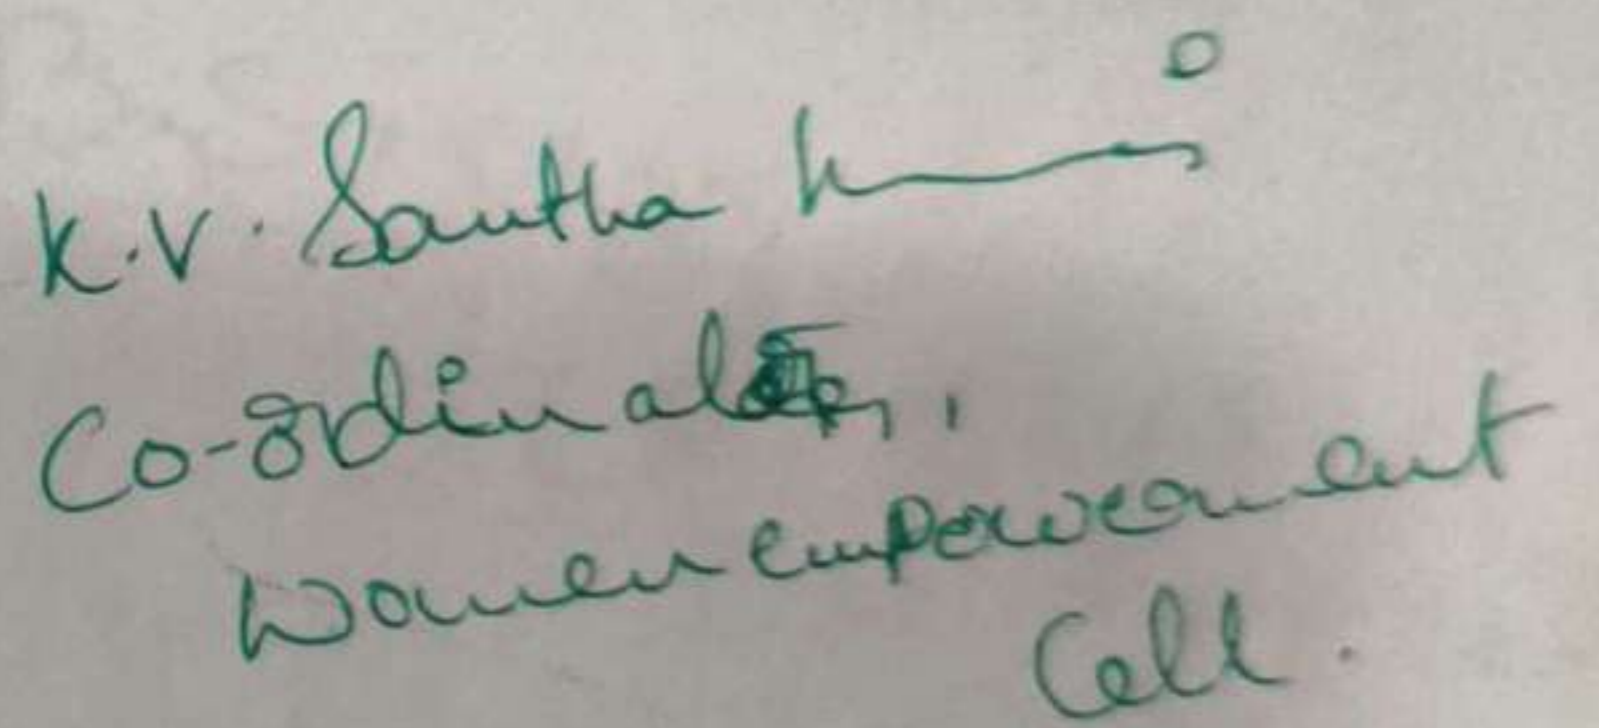 K.V. Santha Kumari
Co-ordinator,
Women empowerment
Cell.